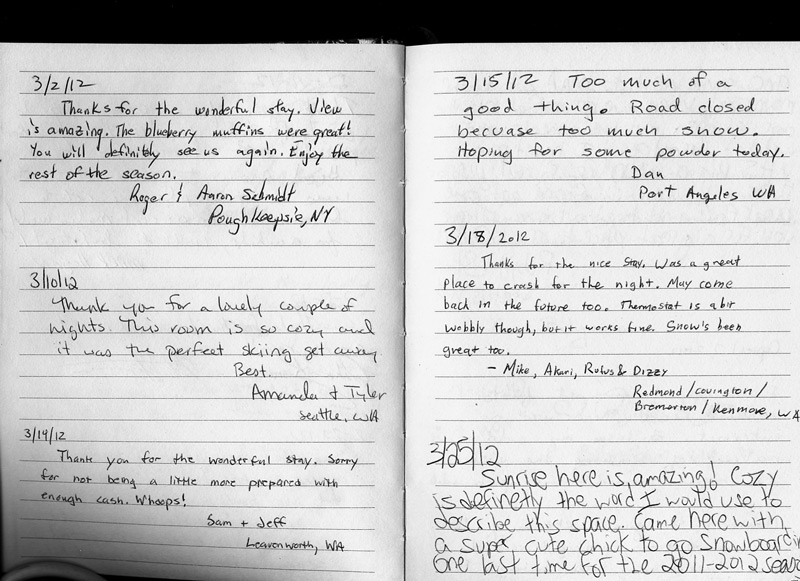 3/2/12
Thanks for the wonderful stay. View
is amazing. The blueberry muffins were great!
You will definitly see us again. Enjoy the
rest of the season.
Roger & Aaron Schmidt
Poughkeepsie, NY
3/10/12
Thank you for a lovely couple of
nights. This room is so cozy and
it was the perfect skiing get away
Best.
Amanda + Tyler
Seattle, WA
3/14/12
Thank you for the wonderful stay. Sorry
for not being a little more prepared with
enough cash. Whoops!
Sam + Jeff
Leavenworth, WA
3/15/12 Too much of a
good thing. Road closed
becuase too much snow.
Hoping for some powder today.
Dan
Port Angeles WA
3/18/2012
Thanks for the nice stay. Was a great
place to crash for the night. May come
back in the future too. Thermostat is a bit
wobbly though, but it works fine. Snow's been
great too.
- Mike, Akari, Rufus & Dizzy
Redmond/Covington/
Bremerton/Kenmore, WA
3/25/12
Sunrise here is amazing! Cozy
is definetly the word I would use to
describe this space. Came here with
a super cute chick to go snowboardin
one last time for the 2011-2012 seaso